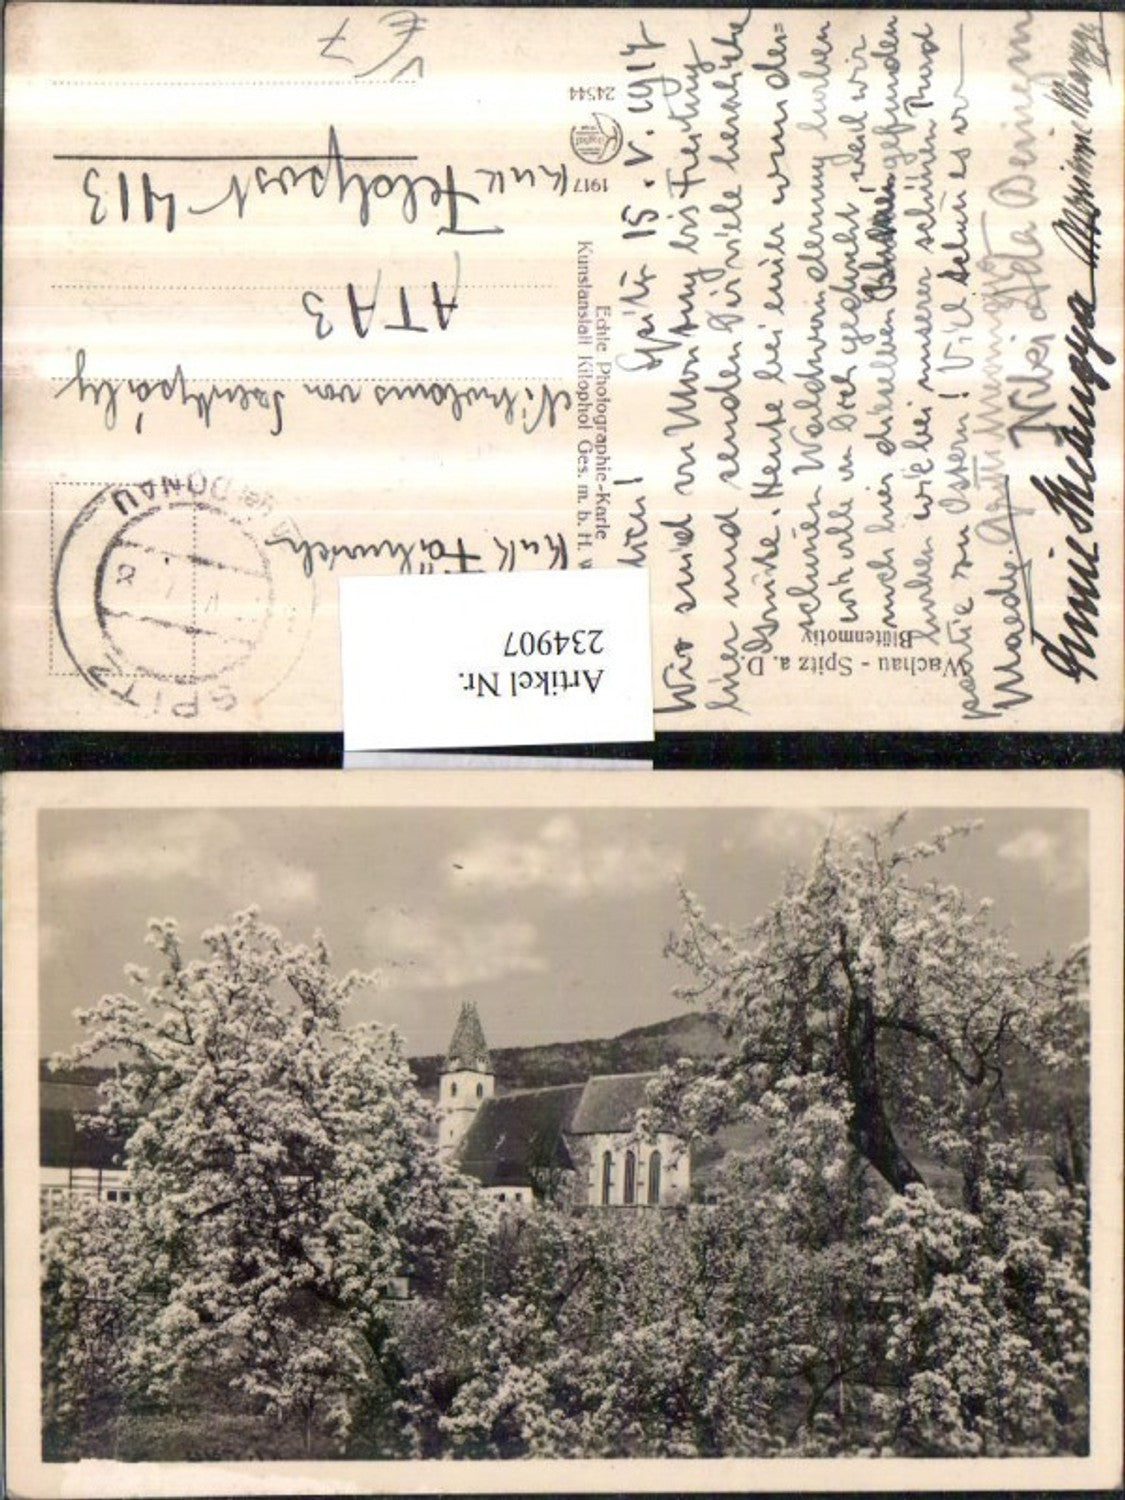 Wachau - Spitz a. D.
Blütenmotiv
Spitz 15. V. 1917
Wir sind von Montag bis Freitag
hier und senden Dir viele herzliche
Grüße. Heute bei einer wunder=
schönen Waldwanderung haben
wir alle an Dich gedacht, weil wir
auch hier dieselben Blumen gefunden
haben wie bei unserer schönen Rund
partie zu Ostern! Viel schönes von
Maedy.
Echte Photographie-Karte
Kunstanstalt Kilophot Ges. m. b. H.
1917
24544
KuK Fähnrich
Nikolaus von
ATA 3
KuK Feldpost 413
SPITZ
an der DONAU
Artikel Nr.
234907